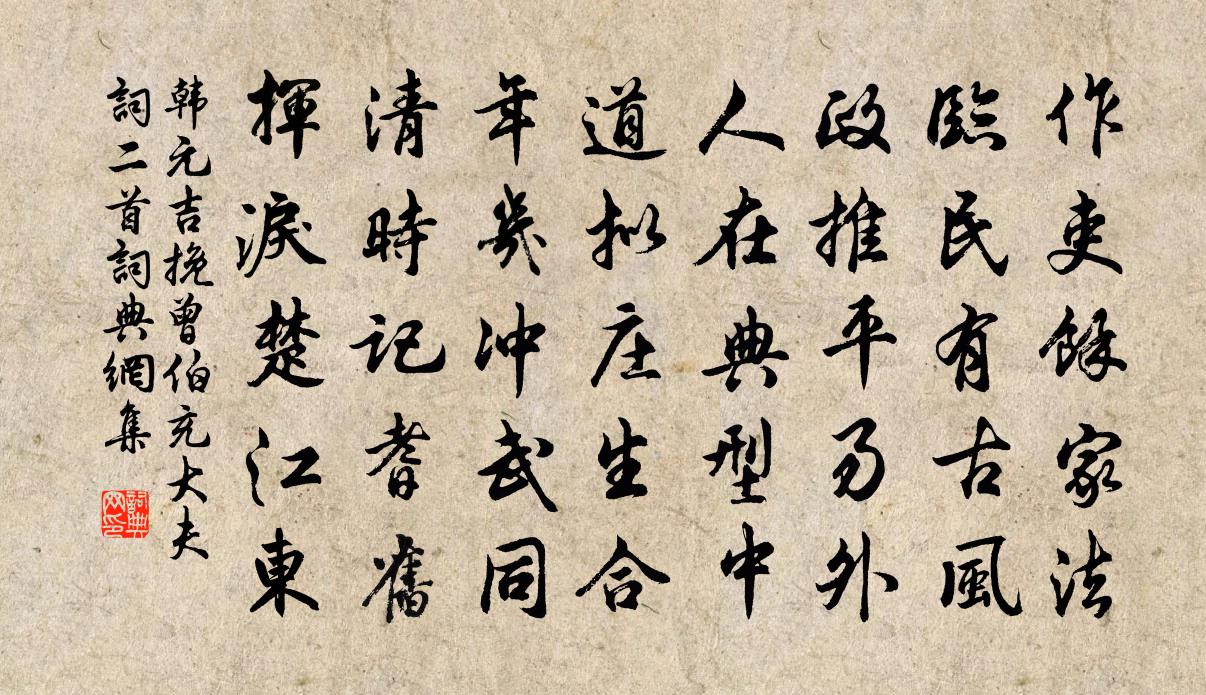 作吏餘家法
臨民有古風
政推平易外
人在典型中
道拟庄生合
年幾冲武同
清時記耆舊
揮淚楚江東
韩元吉挽曾伯充大夫
詞二首詞典網集
詞典网印